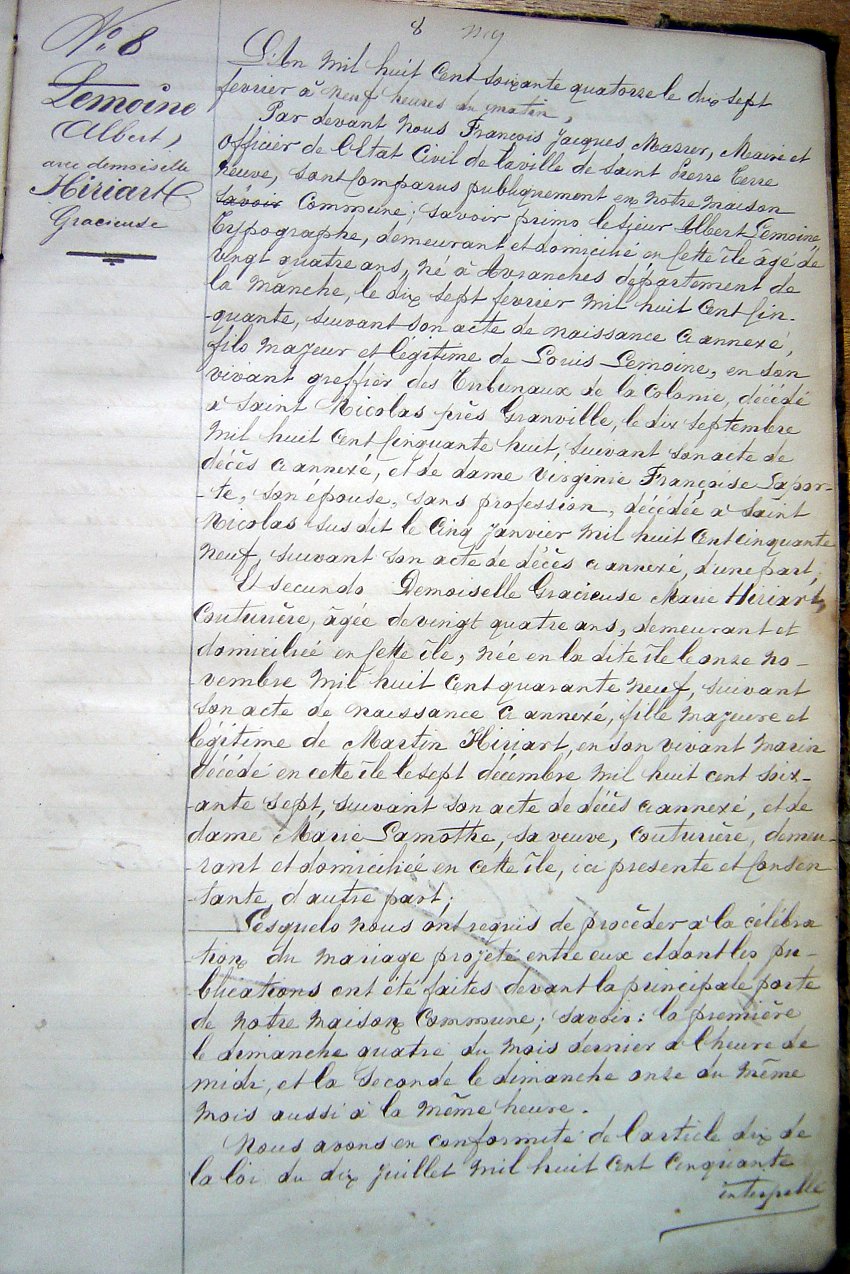 8
No 8
Lemoine
(Albert)
avec demoiselle
Hiriart
Gracieuse
L'An mil huit cent soixante quatorze le dix sept
fevrier à neuf heures du matin,
Par devant nous François Jacques Mazier, Maire et
officier de l'Etat Civil de la ville de Saint Pierre Terre
Neuve, sont comparus publiquement en notre maison
savoir Commune; savoir primo le sieur Albert Lemoine,
Typographe, demeurant et domicilié en cette île agé de
vingt quatre ans, né à Avranches département de
la Manche, le dix sept fevrier mil huit cent cin-
quante, suivant son acte de naissance ci annexé,
fils majeur et légitime de Louis Lemoine, en son
vivant greffier des Tribunaux de la Colonie, décédé
à Saint Nicolas près Granville, le dix septembre
mil huit cent cinquante huit, suivant son acte de
décès ci annexé, et de dame Virginie Françoise Lapor-
-te, son épouse, sans profession, décédée à Saint
Nicolas sus dit le cinq janvier mil huit cent cinquante
neuf, suivant son acte de décès ci annexé, d'une part;
Et secundo Demoiselle Gracieuse Marie Hiriart,
Couturière, âgée de vingt quatre ans, demeurant et
domiciliée en cette île, née en la dite île le onze no-
-vembre mil huit cent quarante neuf, suivant
son acte de naissance ci annexé, fille majeure et
légitime de Martin Hiriart, en son vivant marin
décédé en cette île le sept décembre mil huit cent soix-
-ante sept, suivant son acte de décès ci annexé, et de
dame Marie Lamothe, sa veuve, couturière, demeu-
-rant et domiciliée en cette île, ici presente et consen
-tante, d'autre part;
Lesquels nous ont requis de procéder à la célébra
tion du mariage projeté entre eux et dont les pu-
-blications ont été faites devant la principale porte
de notre maison Commune; savoir: la première
le dimanche quatre du mois dernier à l'heure de
midi, et la seconde le dimanche onze du même
mois aussi à la même heure.
Nous avons en conformité de l'article dix de
la loi du dix juillet mil huit cent cinquante
interpellé